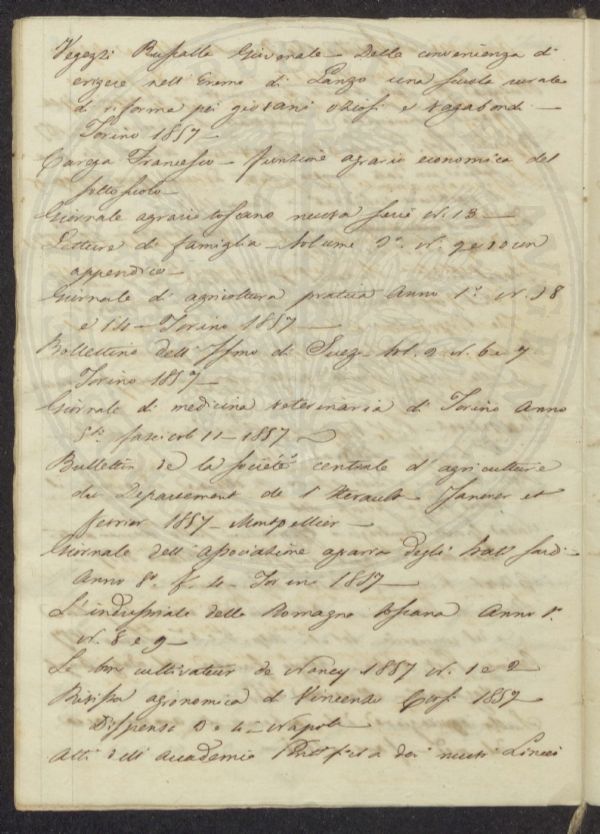 Vegezzi Ruscalla Giovenale - Della convenienza di
erigere nell'Eremo di Lanzo una scuola rurale
di riforma pei giovani oziosi e vagabondi -
Torino 1857 -
Carega Francesco - funzione agrario economica del
sottosuolo -
Giornale agrario toscano nuova serie N. 13 -
Letture di famiglia - Volume 9° N. 9 e 10 un
appendice -
Giornale di agricoltura pratica Anno 1° N. 18
e 14 - Torino 1857 -
Bollettino dell'Istmo di Suez Vol. 2 N. 6 e 7
Torino 1857 -
Giornale di medicina veterinaria di Torino Anno
5° fascicolo 11 - 1857
Bulletin de la société centrale d'agriculture
du Departement de l'Herault Janvier et
fevrier 1857 - Montpellier -
Giornale dell'Associazione agraria degli Stati Sardi
Anno 8° f. 4 - Torino 1857 -
L'industriale della Romagna toscana Anno 1°
N. 8 e 9 -
Le bon cultivateur de Nancy 1857 N. 1 e 2
Rivista agronomica di Vincenzo Corsi 1857
Dispensa 3 e 4 - Napoli
Atti dell'Accademia Pontificia dei nuovi Lincei